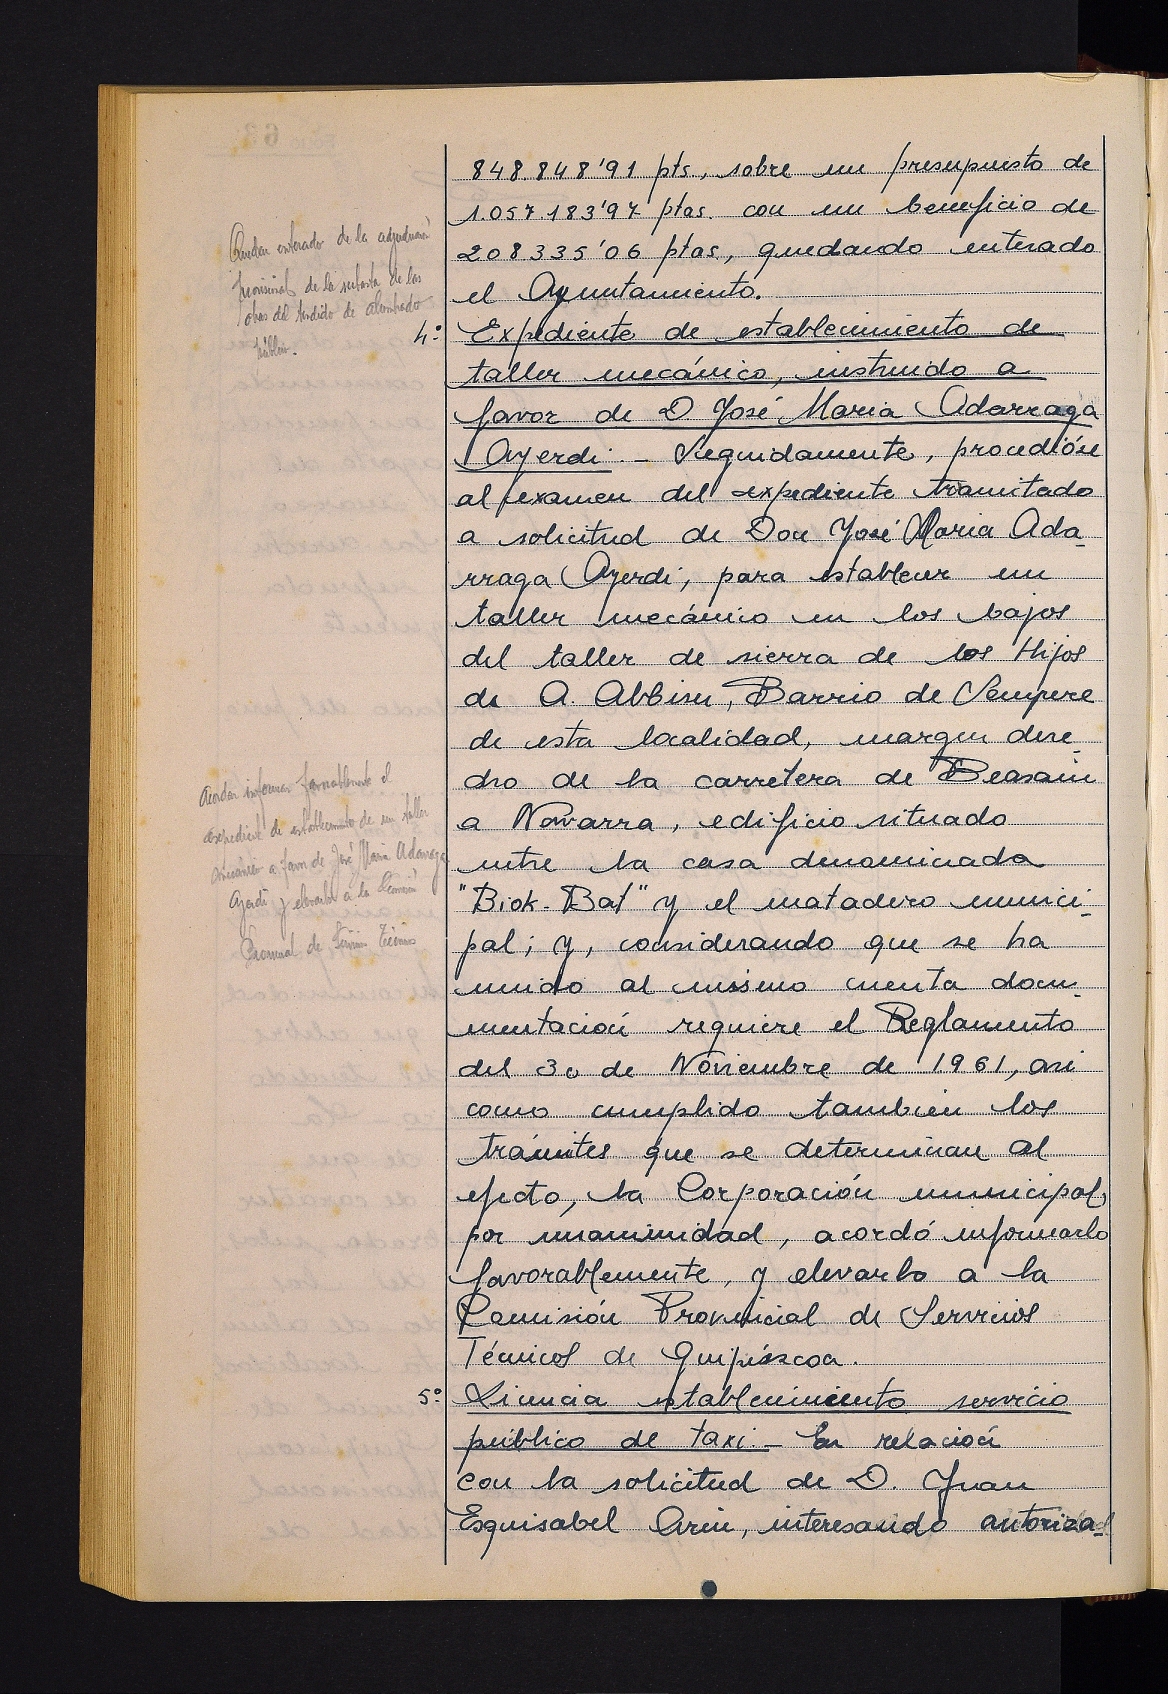 848.848'91 pts, sobre un presupuesto de
1.057.183'97 ptas. con un beneficio de
208335'06 ptas, quedando enterado
el Ayuntamiento.
Quedan enterados de la adjudicación
provisional de la subasta de las
obras del tendido de alumbrado
público.
4º Expediente de establecimiento de
taller mecánico, instruido a
favor de D. José Maria Adarraga
Ayerdi.- Seguidamente, procedióse
al examen del expediente tramitado
a solicitud de Don José Maria Ada-
rraga Ayerdi, para establecer un
taller mecánico en los bajos
del taller de sierra de los Hijos
de A. Albisu, Barrio de Sempere
de esta localidad, margen dere-
cho de la carretera de Beasain
a Navarra, edificio situado
entre la casa denominada
"Biok-Bat" y el matadero munici-
pal; y, considerando que se ha
unido al mismo cuenta docu-
mentación requiere el Reglamento
del 30 de Noviembre de 1961, asi
como cumplido tambien los
trámites que se determinan al
efecto, la Corporación municipal,
por unanimidad, acordó informarlo
favorablemente, y elevarlo a la
Comisión Provincial de Servicios
Técnicos de Guipúzcoa.
Acordar informar favorablemente el
expediente de establecimiento de un taller
mecánico a favor de José Maria Adarraga
Ayerdi y elevarlo a la Comisión
Provincial de Servicios Técnicos
5º Licencia establecimiento servicio
público de taxi.- En relación
con la solicitud de D. Juan
Esquisabel Arin, interesando autoriza-